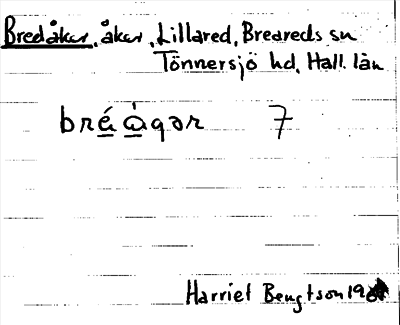 Bredåker, åker, Lillared, Breareds sn
Tönnersjö hd, Hall. län
bré̲ à̲gər 7
Harriet Bengtson